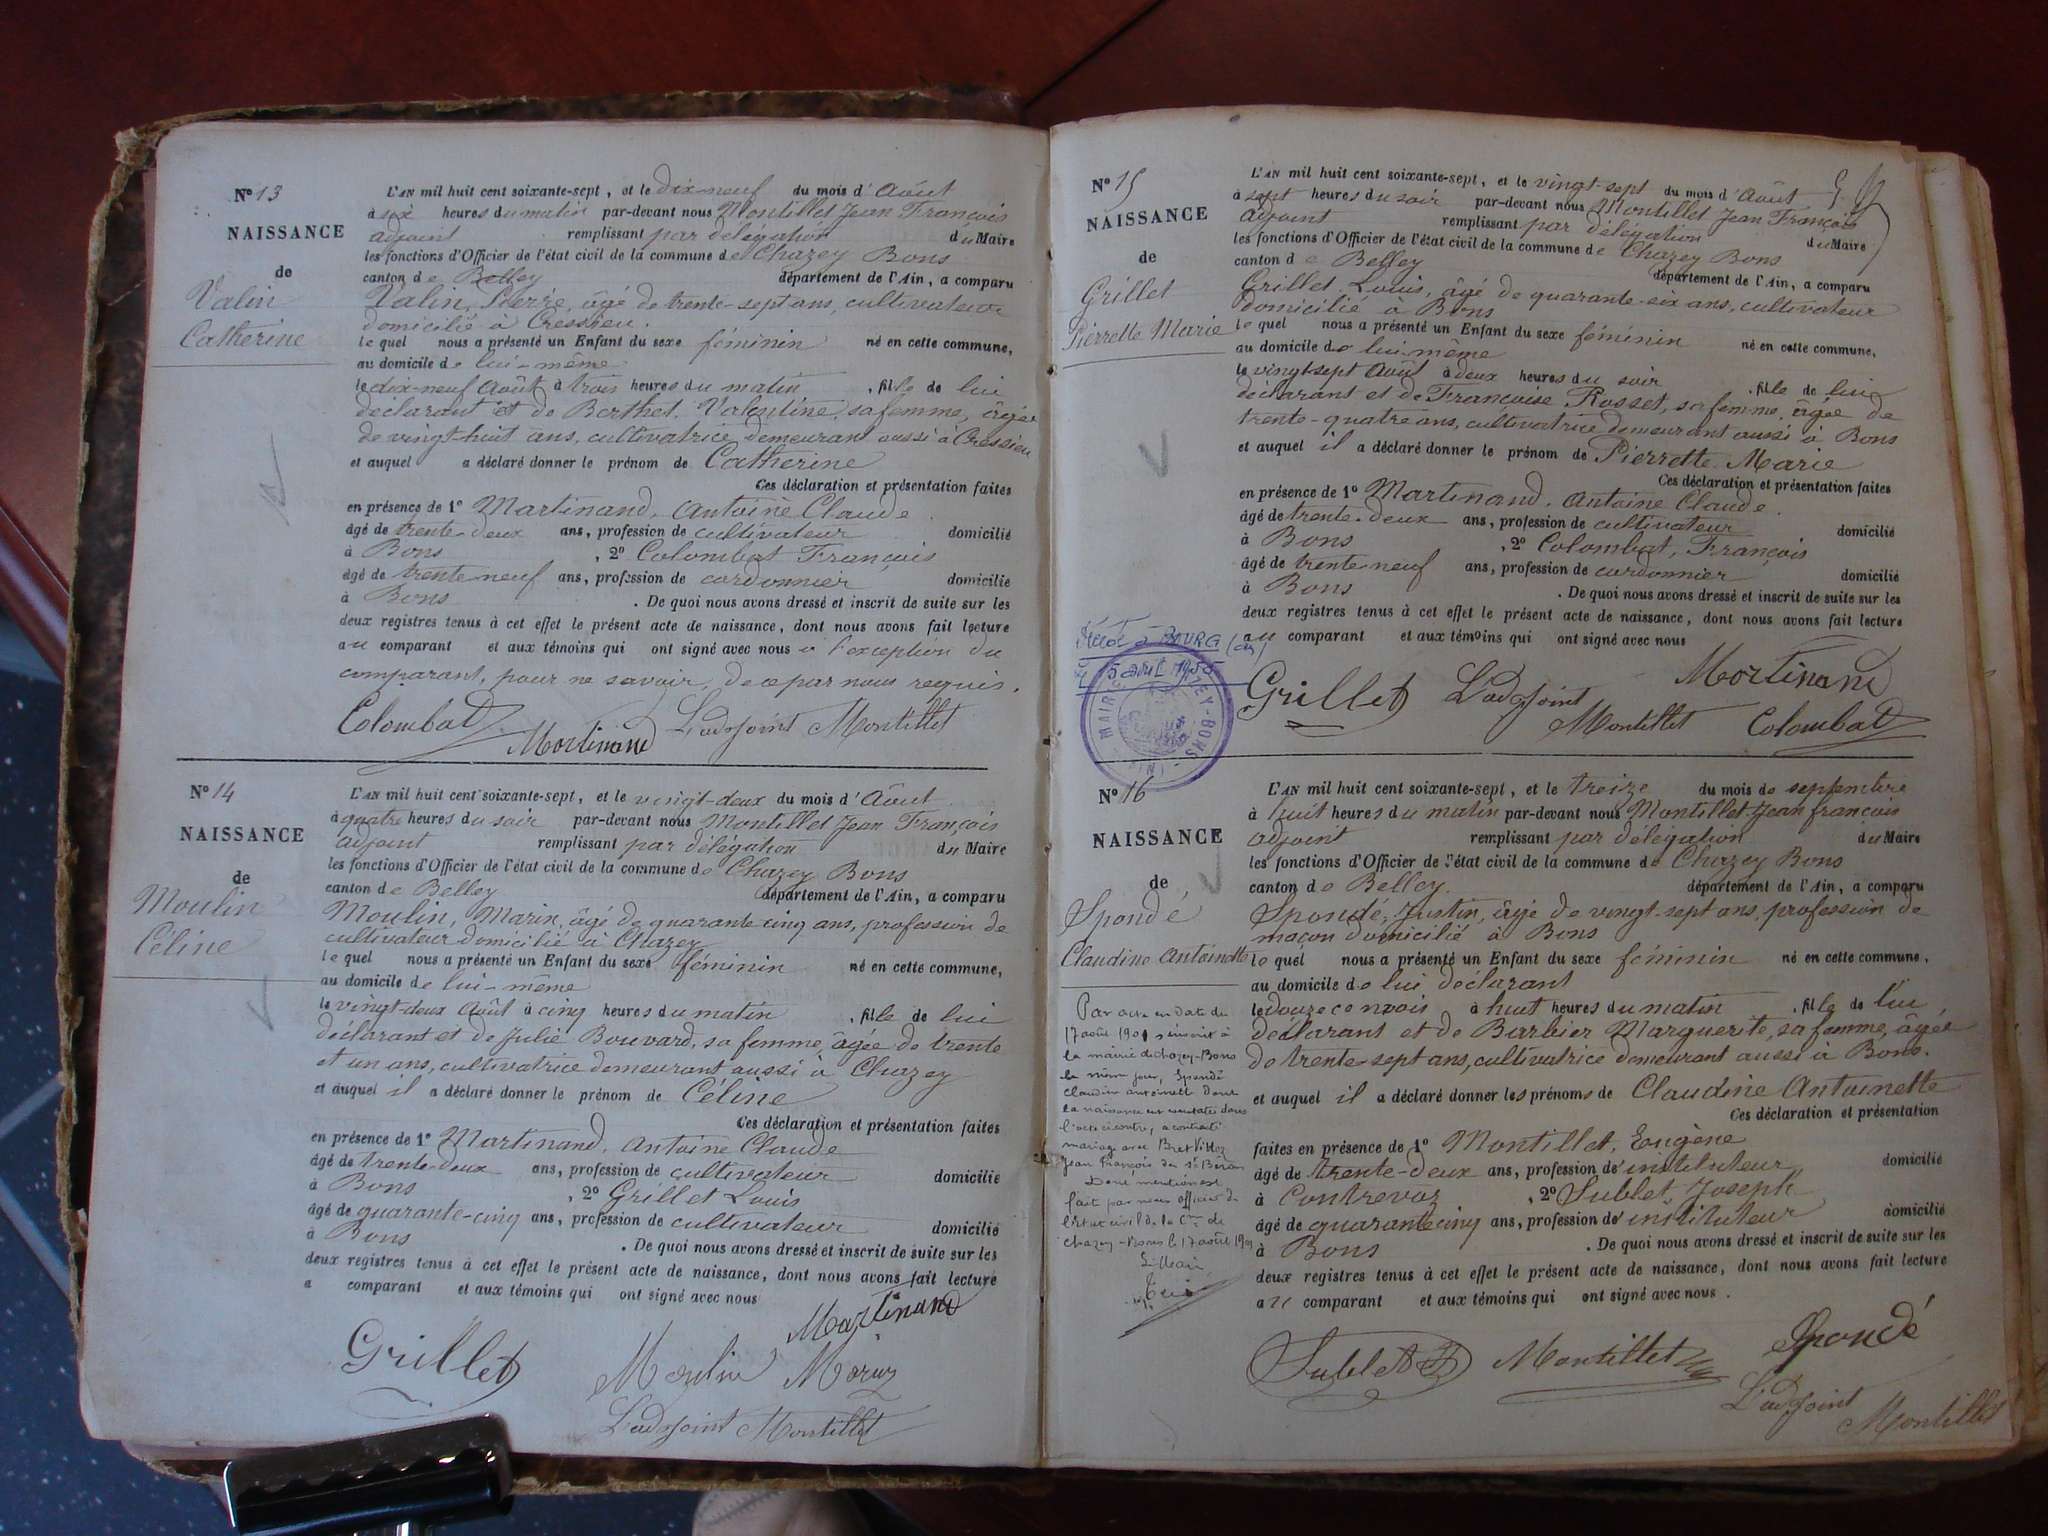 N° 13
NAISSANCE
de
Valin
Catherine
L'AN mil huit cent soixante-sept, et le dix-neuf du mois d'Août
à six heures du matin par-devant nous Montillet Jean François
adjoint remplissant par délégation du Maire
les fonctions d'Officier de l'état civil de la commune de Chazey Bons
canton de Belley département de l'Ain, a comparu
Valin, Pierre, âgé de trente-sept ans, cultivateur
domicilié à Cressieu.
lequel nous a présenté un Enfant du sexe féminin né en cette commune,
au domicile de lui-même
le dix-neuf Août à trois heures du matin, fille de lui
déclarant et de Berthet, Valentine, sa femme, âgée
de vingt-huit ans, cultivatrice demeurant aussi à Cressieu
et auquel a déclaré donner le prénom de Catherine
Ces déclaration et présentation faites
en présence de 1° Martinand, Antoine Claude
âgé de trente-deux ans, profession de cultivateur domicilié
à Bons, 2° Colombat François
âgé de trente-neuf ans, profession de cordonnier domicilié
à Bons. De quoi nous avons dressé et inscrit de suite sur les
deux registres tenus à cet effet le présent acte de naissance, dont nous avons fait lecture
au comparant et aux témoins qui ont signé avec nous à l'exception du
comparant, pour ne savoir, de ce par nous requis.
Colombat Martinand L'adjoint Montillet
N° 14
NAISSANCE
de
Moulin
Céline
L'AN mil huit cent soixante-sept, et le vingt-deux du mois d'Août
à quatre heures du soir par-devant nous Montillet Jean François
adjoint remplissant par délégation du Maire
les fonctions d'Officier de l'état civil de la commune de Chazey Bons
canton de Belley département de l'Ain, a comparu
Moulin, Marin, âgé de quarante cinq ans, profession de
cultivateur domicilié à Chazey
lequel nous a présenté un Enfant du sexe féminin né en cette commune,
au domicile de lui-même
le vingt-deux Août à cinq heures du matin, fille de lui
déclarant et de Julie Bouvard, sa femme, âgée de trente
et un ans, cultivatrice demeurant aussi à Chazey
et auquel il a déclaré donner le prénom de Céline
Ces déclaration et présentation faites
en présence de 1° Martinand, Antoine Claude
âgé de trente-deux ans, profession de cultivateur domicilié
à Bons, 2° Grillet Louis
âgé de quarante-cinq ans, profession de cultivateur domicilié
à Bons. De quoi nous avons dressé et inscrit de suite sur les
deux registres tenus à cet effet le présent acte de naissance, dont nous avons fait lecture
a comparant et aux témoins qui ont signé avec nous
Martinand
Grillet Moulin
L'adjoint Montillet
N° 15
NAISSANCE
de
Grillet
Pierrette Marie
L'AN mil huit cent soixante-sept, et le vingt-sept du mois d'Août
à sept heures du soir par-devant nous Montillet Jean François
adjoint remplissant par délégation du Maire
les fonctions d'Officier de l'état civil de la commune de Chazey Bons
canton de Belley département de l'Ain, a comparu
Grillet Louis, âgé de quarante-six ans, cultivateur
domicilié à Bons
lequel nous a présenté un Enfant du sexe féminin né en cette commune,
au domicile de lui-même
le vingt-sept Août à deux heures du soir, fille de lui
déclarant et de Françoise Rosset, sa femme, âgée de
trente-quatre ans, cultivatrice demeurant aussi à Bons
et auquel il a déclaré donner le prénom de Pierrette Marie
Ces déclaration et présentation faites
en présence de 1° Martinand, Antoine Claude
âgé de trente-deux ans, profession de cultivateur domicilié
à Bons, 2° Colombat, François
âgé de trente-neuf ans, profession de cordonnier domicilié
à Bons. De quoi nous avons dressé et inscrit de suite sur les
deux registres tenus à cet effet le présent acte de naissance, dont nous avons fait lecture
au comparant et aux témoins qui ont signé avec nous
à BOURG
5 avril 1955
MAIRIE CHAZEY-BONS
Martinand
Grillet L'adjoint
Montillet Colombat
N° 16
NAISSANCE
de
Spondé
Claudine Antoinette
Par acte en date du
17 août 1901, inscrit à
la mairie de Chazey-Bons
le même jour, Spondé
Claudine Antoinette dont
la naissance est constatée dans
l'acte ci contre, a contracté
mariage avec
Jean François de
Dont mention est
faite par nous officier de
l'état civil de la Cne de
Chazey-Bons le 17 août 1901
Le Maire
L'AN mil huit cent soixante-sept, et le treize du mois de septembre
à huit heures du matin par-devant nous Montillet Jean françois
adjoint remplissant par délégation du Maire
les fonctions d'Officier de l'état civil de la commune de Chazey Bons
canton de Belley. département de l'Ain, a comparu
Spondé, Justin, âgé de vingt-sept ans, profession de
maçon domicilié à Bons
lequel nous a présenté un Enfant du sexe féminin né en cette commune,
au domicile de lui déclarant
le douze ce mois à huit heures du matin, fille de lui
déclarant et de Barbier Marguerite, sa femme, âgée
de trente-sept ans, cultivatrice demeurant aussi à Bons.
et auquel il a déclaré donner les prénoms de Claudine Antoinette
Ces déclaration et présentation
faites en présence de 1° Montillet, Eugène
âgé de trente-deux ans, profession de instituteur domicilié
à Contrevoz, 2° Sublet, Joseph
âgé de quarante cinq ans, profession de instituteur domicilié
à Bons. De quoi nous avons dressé et inscrit de suite sur les
deux registres tenus à cet effet le présent acte de naissance, dont nous avons fait lecture
au comparant et aux témoins qui ont signé avec nous.
Sublet Montillet Spondé
L'adjoint
Montillet